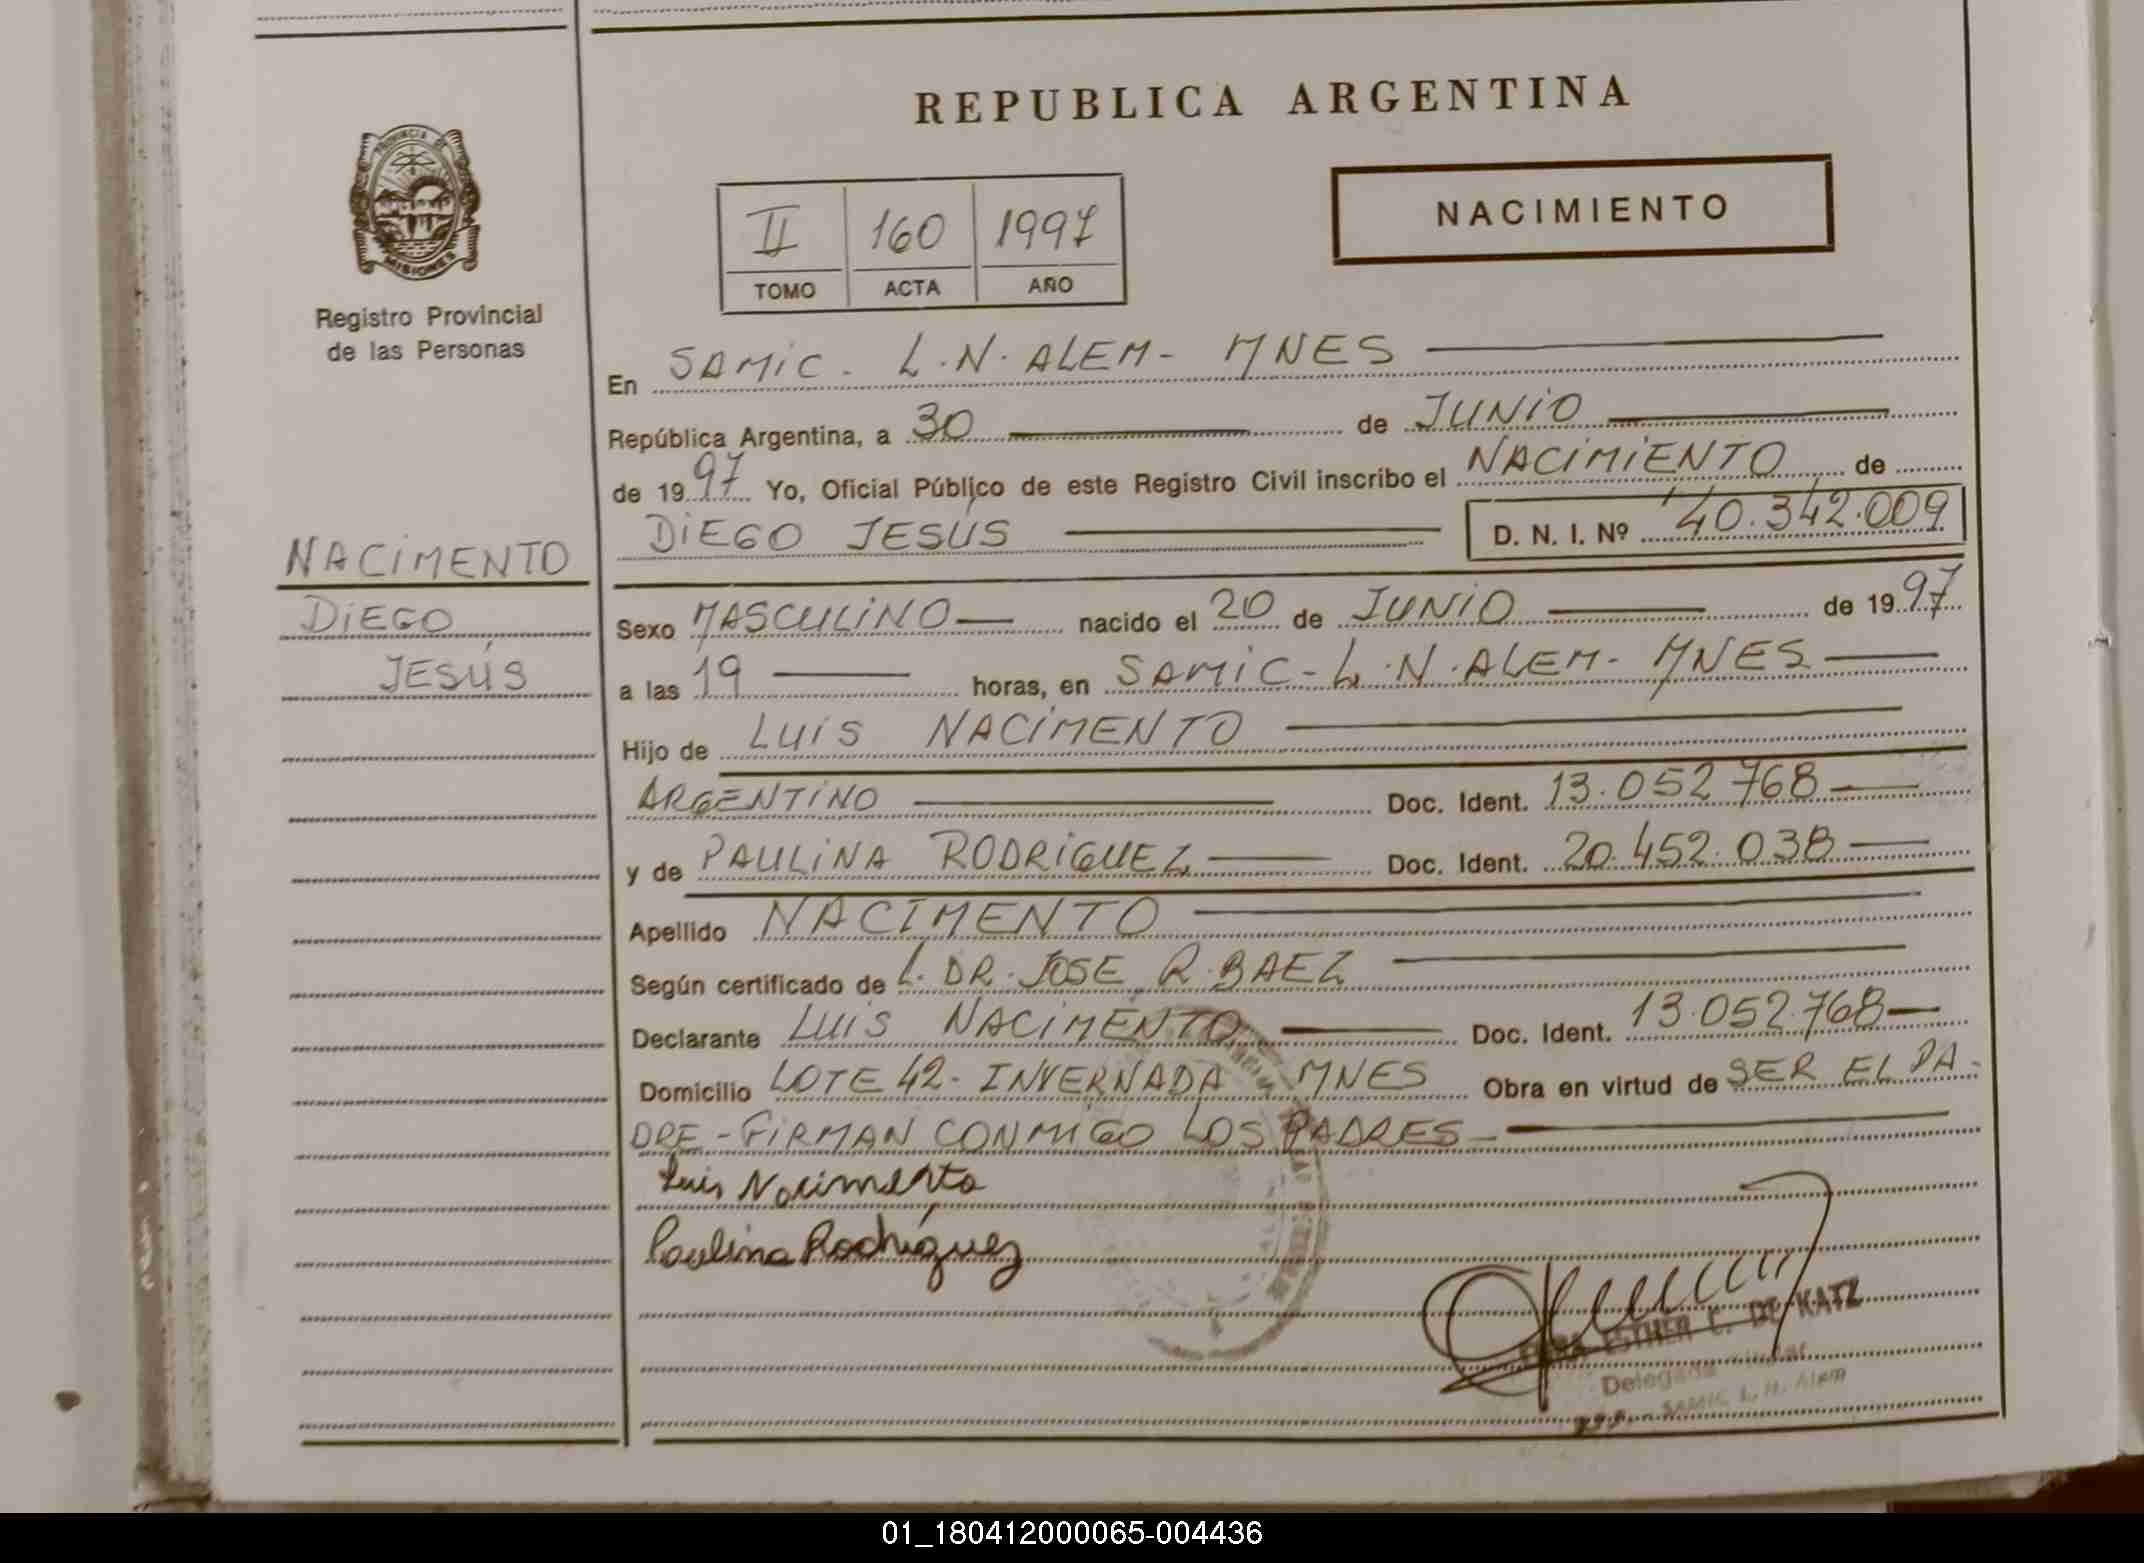 REPUBLICA ARGENTINA
PROVINCIA DE
MISIONES
Registro Provincial
de las Personas
II 160 1997
TOMO ACTA AÑO
NACIMIENTO
En SAMIC - L.N. ALEM - MNES
República Argentina, a 30 de JUNIO
de 1997 Yo, Oficial Público de este Registro Civil inscribo el NACIMIENTO de
DIEGO JESUS D. N. I. Nº 40.342.009
NACIMENTO
DIEGO
JESÚS
Sexo MASCULINO nacido el 20 de JUNIO de 1997
a las 19 horas, en SAMIC - L.N. ALEM - MNES
Hijo de LUIS NACIMENTO
ARGENTINO Doc. Ident. 13.052.768
y de PAULINA RODRIGUEZ Doc. Ident. 20.452.038
Apellido NACIMENTO
Según certificado de L. DR. JOSE R. BAEZ
Declarante LUIS NACIMENTO Doc. Ident. 13.052.768
Domicilio LOTE 42 - INVERNADA MNES Obra en virtud de SER EL PA-
DRE - FIRMAN CONMIGO LOS PADRES
Luis Nacimento
Paulina Rodríguez
ESTHER C. DE KATZ
Delegada Titular
SAMIC L. N. Alem
01_180412000065-004436